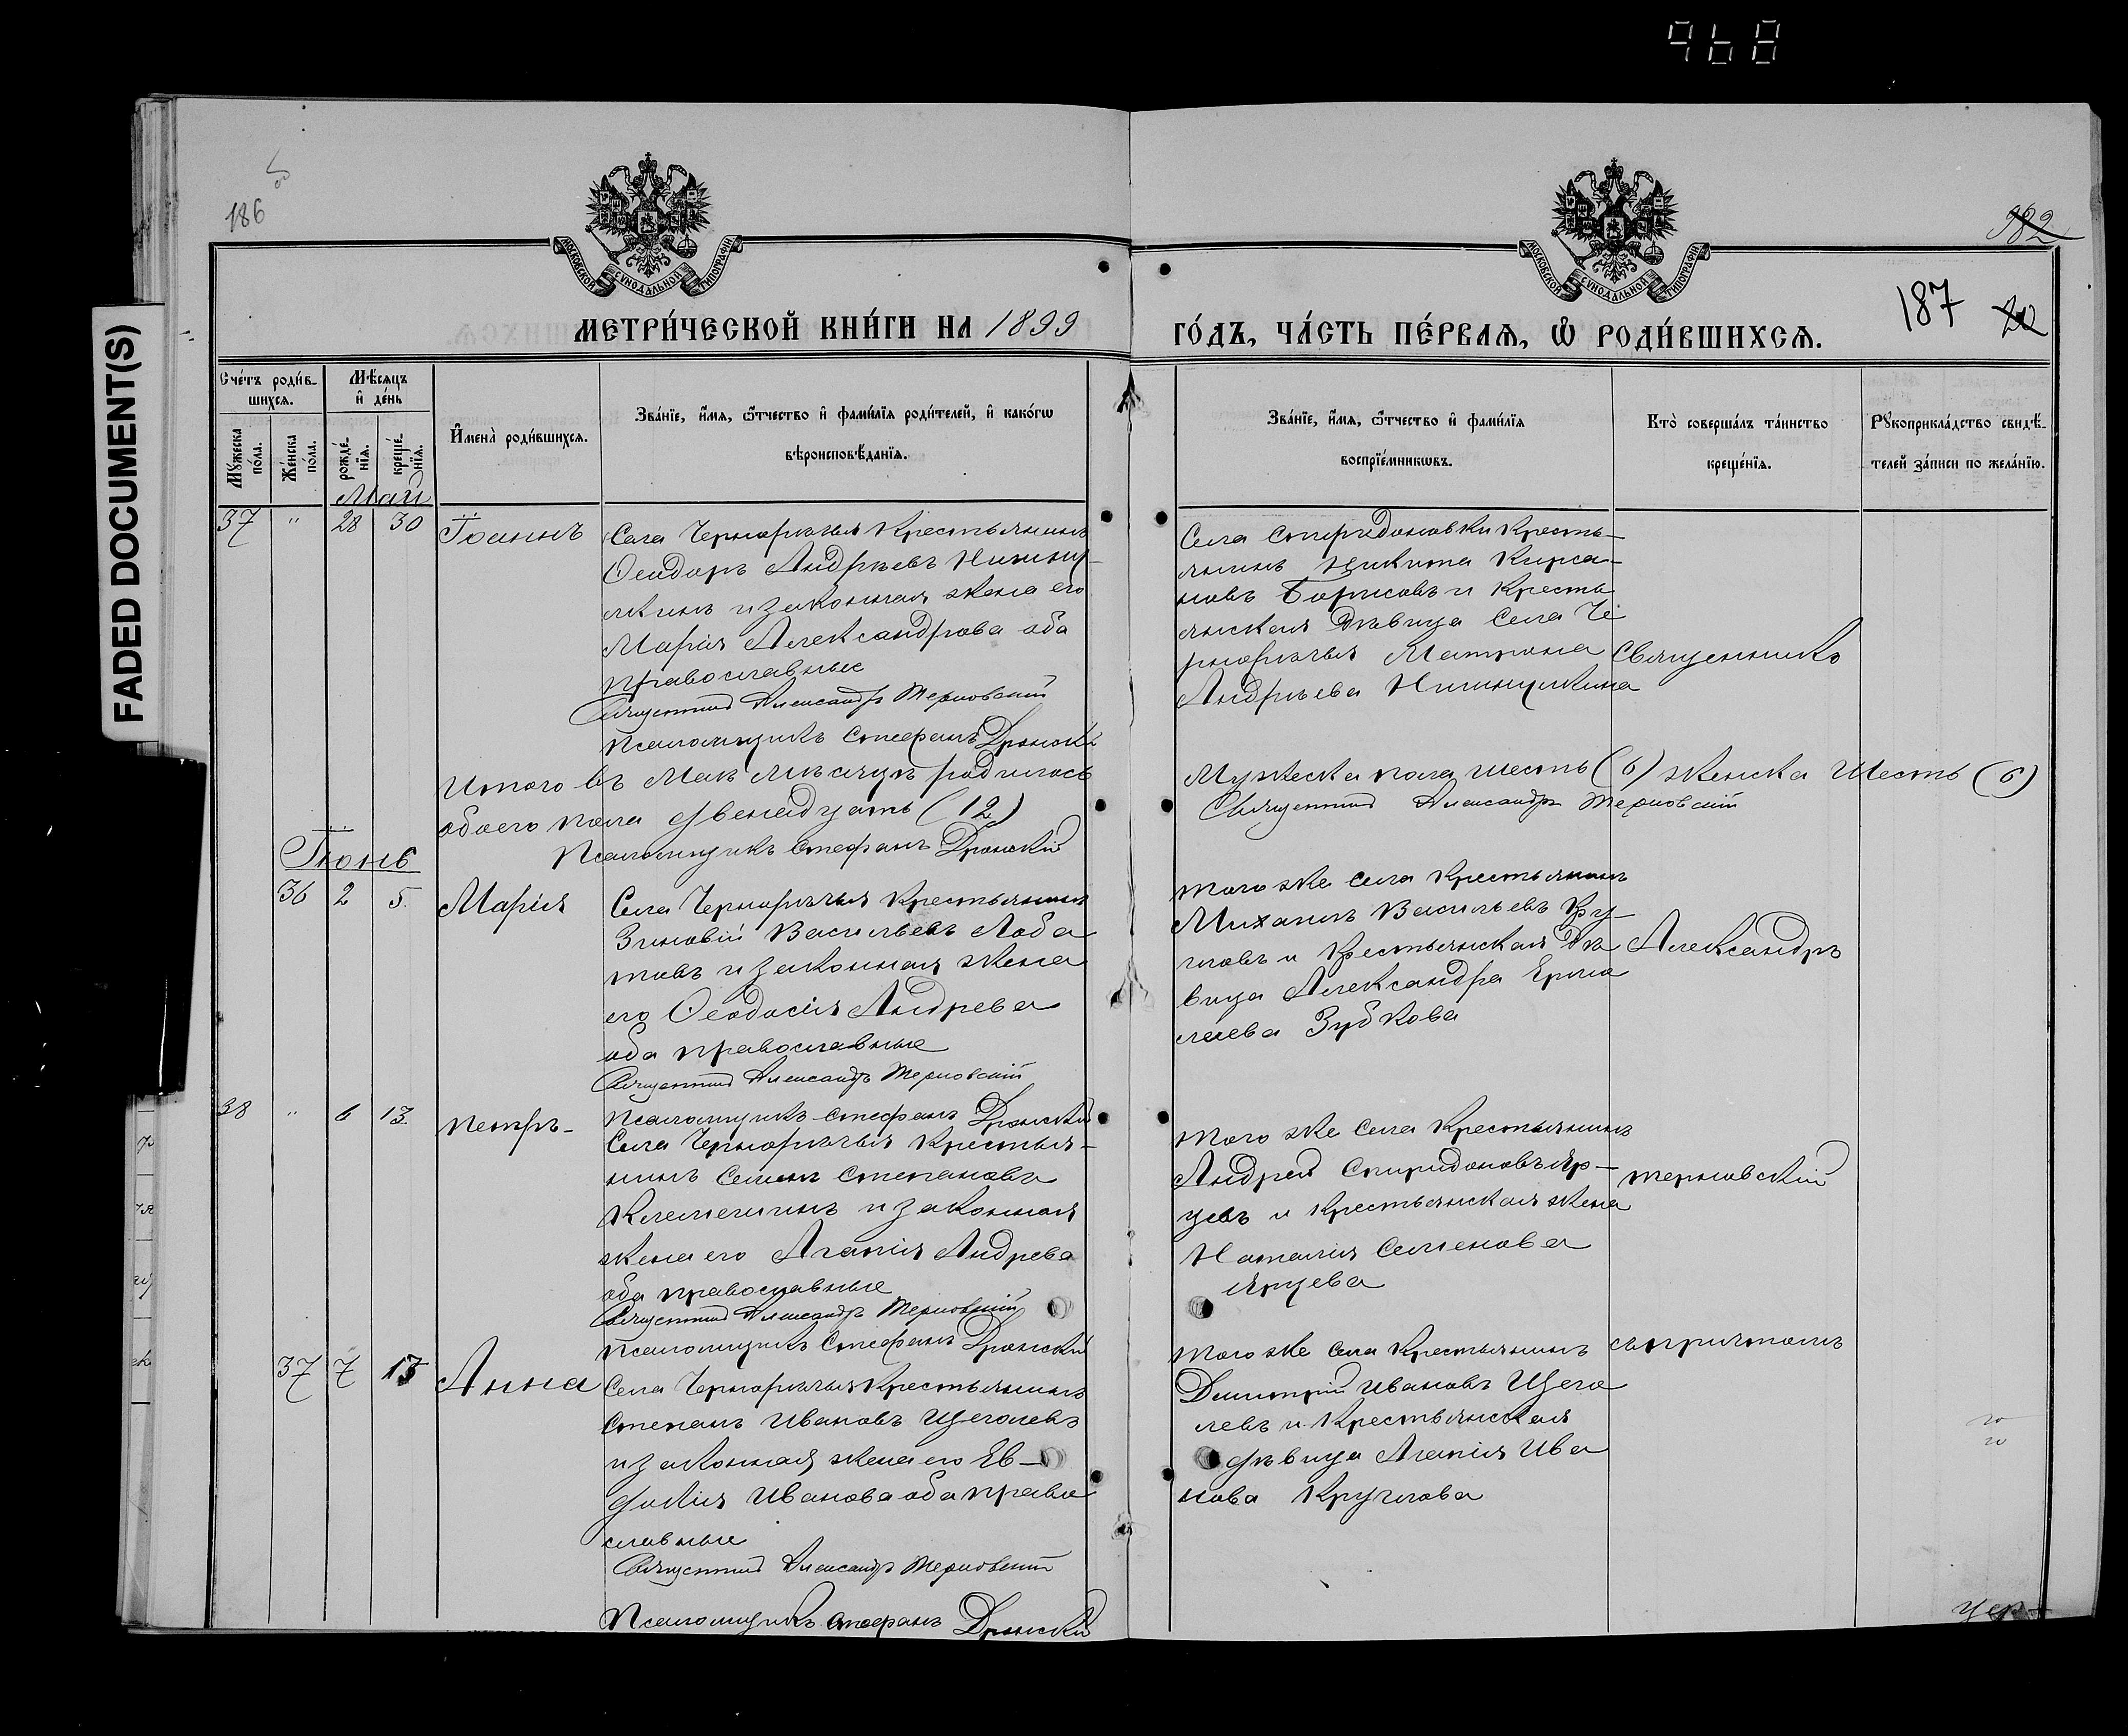 968
FADED DOCUMENT(S)
186
982
МОСКОВСКОЙ СѴНОДАЛЬНОЙ ТИПОГРАФІИ
МОСКОВСКОЙ СѴНОДАЛЬНОЙ ТИПОГРАФІИ
187 20
МЕТРИ́ЧЕСКОЙ КНИ́ГИ НА 1899
ГО́ДЪ, ЧА́СТЬ ПЕ́РВАѦ, Ѽ РОДИ́ВШИХСѦ.
Сче́тъ роди́в-
шихсѧ.
Мѣ́сѧцъ
и҆ де́нь
Мꙋ́жеска
по́ла.
Же́нска
по́ла.
рожде́-
нїѧ.
креще́-
нїѧ.
И҆мена̀ роди́вшихсѧ.
Зва́нїе, и҆́мѧ, ѻ҆́тчество и҆ фами́лїѧ роди́телей, и҆ како́гѡ
вѣроисповѣ́данїѧ.
Зва́нїе, и҆́мѧ, ѻ҆́тчество и҆ фами́лїѧ
воспрїе́мникѡвъ.
Кто̀ соверша́лъ та́инство
креще́нїѧ.
Рꙋкоприкла́дство свидѣ́-
телей за́писи по жела́нїю.
Май
37 " 28 30 Іоаннъ
Села Чернорѣчья Крестьянинъ
Ѳеодоръ Андрѣевъ
и законная жена его
Марія Александрова оба
православные
Священникъ Александръ Терновскій
Псаломщикъ Стефанъ Дронскій
Села Спиридоновки Кресть-
янинъ Никита Кирса-
новъ Борисовъ и Кресть
янская дѣвица Села Че
рнорѣчья Матрона
Андрѣева
Священникъ
Итого въ Маѣ мѣсяцѣ родилось
обоего пола двенадцать (12)
Псаломщикъ Стефанъ Дронскій
Мужеска пола шесть (6) женска шесть (6)
Священникъ Александръ Терновскій
Іюнь
36 2 5 Марія
Села Чернорѣчья Крестьянинъ
Зиновій Васильевъ Лоба
новъ и законная жена
его Ѳеодосія Андрева
оба православные
Священникъ Александръ Терновскій
Псаломщикъ Стефанъ Дронскій
Того же села Крестьянинъ
Михаилъ Васильевъ Кру-
гловъ и Крестьянская дѣ
вица Александра Ермо
лаева Зубкова
Александръ
38 " 6 13 Петръ
Села Чернорѣчья Крестья-
нинъ Семенъ Степановъ
Клемешинъ и законная
жена его Агапія Андрева
оба православные
Священникъ Александръ Терновскій
Псаломщикъ Стефанъ Дронскій
Того же села Крестьянинъ
Андрей Спиридоновъ Яр-
цевъ и Крестьянская жена
Наталія Семенова
Ярцева
Терновскій
37 7 13 Анна
Села Чернорѣчья Крестьянинъ
Степанъ Ивановъ Щеголевъ
и законная жена его Ев-
докія Иванова оба право
славные
Священникъ Александръ Терновскій
Псаломщикъ Стефанъ Дронскій
Того же села Крестьянинъ
Димитрій Ивановъ Щего
левъ и Крестьянская
дѣвица Агапія Ива
нова Круглова
съ причтомъ
цер-